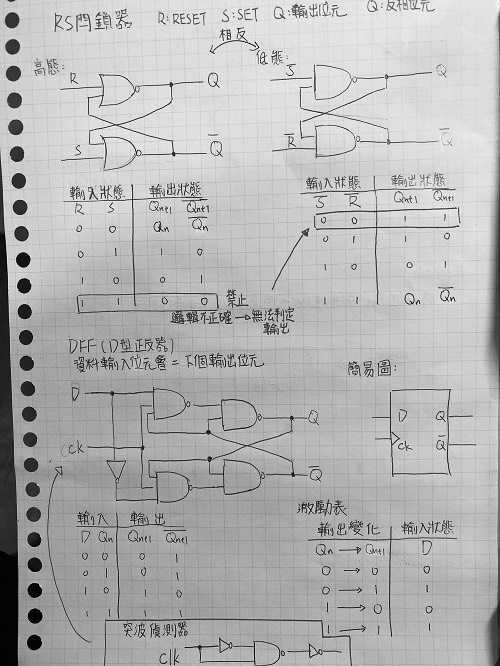 RS閂鎖器 R:RESET S:SET Q:輸出位元 Q̅:反相位元
相反
高態: 低態:
R Q S̅ Q
S Q̅ R̅ Q̅
輸入狀態 輸出狀態
R S Qn+1 Q̅n+1
0 0 Qn Q̅n
0 1 1 0
1 0 0 1
1 1 0 0 禁止
邏輯不正確→無法判定
輸出
輸入狀態 輸出狀態
S̅ R̅ Qn+1 Q̅n+1
0 0 1 1
0 1 1 0
1 0 0 1
1 1 Qn Q̅n
DFF (D型正反器)
資料輸入位元會=下個輸出位元
簡易圖:
D Q
ck Q̅
D Q
ck Q̅
輸入 輸出
D Qn Qn+1 Q̅n+1
0 0 0 1
0 1 0 1
1 0 1 0
1 1
激勵表
輸出變化 輸入狀態
Qn → Qn+1 D
0 → 0 0
0 → 1 1
1 → 0 0
1 → 1 1
突波偵測器
clk